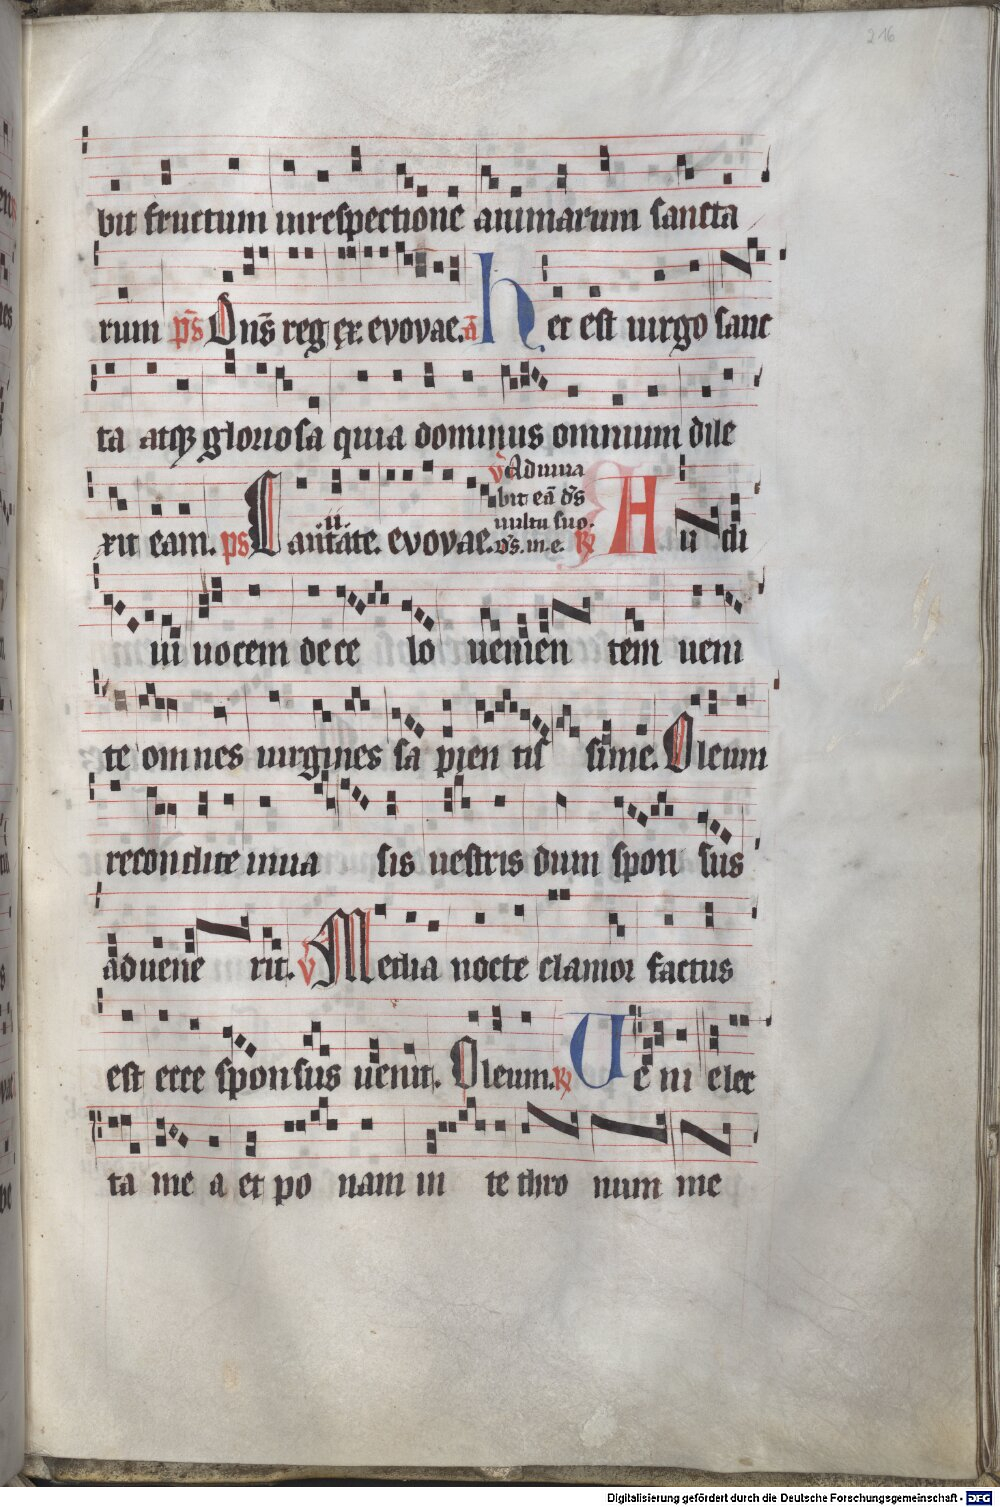 216
bit fructum in respectione animarum sancta
rum ps̄ Dn̄s reg ex. evovae. a̅ Hec est uirgo sanc
ta atq₃ gloriosa quia dominus omnium dile
ẏ Adiuua
bit eā d̄s
uultu suo.
d̄s. in. e.
xit eam. ps Laudate. ii. evovae. R̸ Au di
ui uocem de ce lo uenien tem ueni
te omnes uirgines sa pien tis sime. Oleum
recondite in ua sis uestris dum spon sus
aduene rit. v Media nocte clamor factus
est ecce sponsus uenit. Oleum. R̸ Ue ni elec
ta me a et po nam in te thro num me
Digitalisierung gefördert durch die Deutsche Forschungsgemeinschaft - DFG